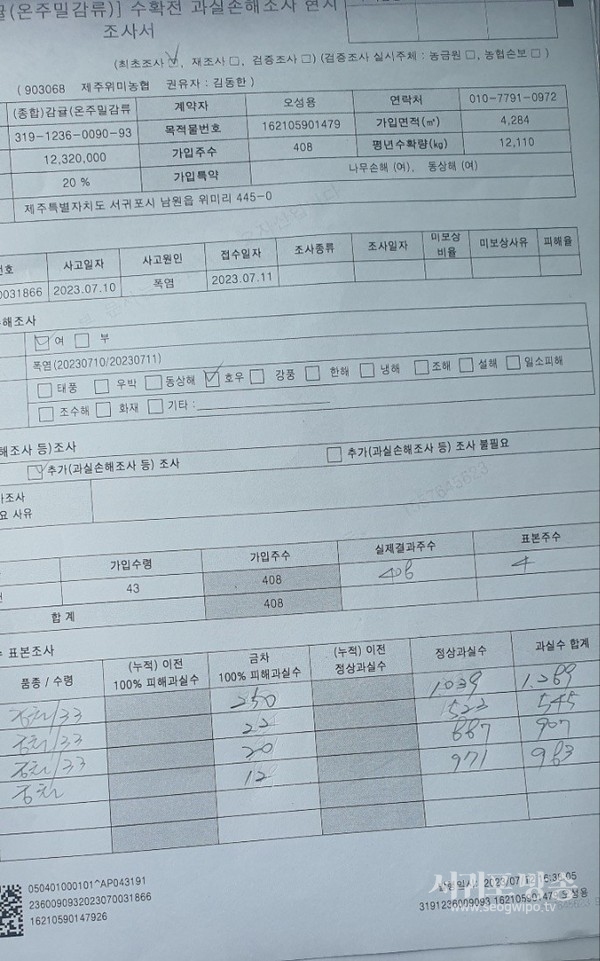 귤(온주밀감류)] 수확전 과실손해조사 현지
조사서
(최초조사 ☑, 재조사 □, 검증조사 □) (검증조사 실시주체 : 농금원 □, 농협손보 □ )
( 903068 제주위미농협 권유자 : 김동한 )
(종합)감귤(온주밀감류 계약자 오성용 연락처 010-7791-0972
319-1236-0090-93 목적물번호 162105901479 가입면적(㎡) 4,284
12,320,000 가입주수 408 평년수확량(kg) 12,110
20 % 가입특약 나무손해 (여), 동상해 (여)
제주특별자치도 서귀포시 남원읍 위미리 445-0
번호 사고일자 사고원인 접수일자 조사종류 조사일자 미보상 비율 미보상사유 피해율
0031866 2023.07.10 폭염 2023.07.11
해조사
☑ 여 □ 부
폭염(20230710/20230711)
□ 태풍 □ 우박 □ 동상해 ☑ 호우 □ 강풍 □ 한해 □ 냉해 □ 조해 □ 설해 □ 일소피해
□ 조수해 □ 화재 □ 기타 :
해조사 등)조사
☑ 추가(과실손해조사 등) 조사 □ 추가(과실손해조사 등) 조사 불필요
가조사
요 사유
가입수령 가입주수 실제결과주수 표본주수
43 408 408 4
합 계 408
수 표본조사
품종 / 수령 (누적) 이전 100% 피해과실수 금차 100% 피해과실수 (누적) 이전 정상과실수 정상과실수 과실수 합계
/33 250 1039 1.289
/33 22 523 545
/33 20 887 907
12 971 983
050401000101^AP043191
2360090932023070031866
16210590147926
서귀포방송
www.seogwipo.tv